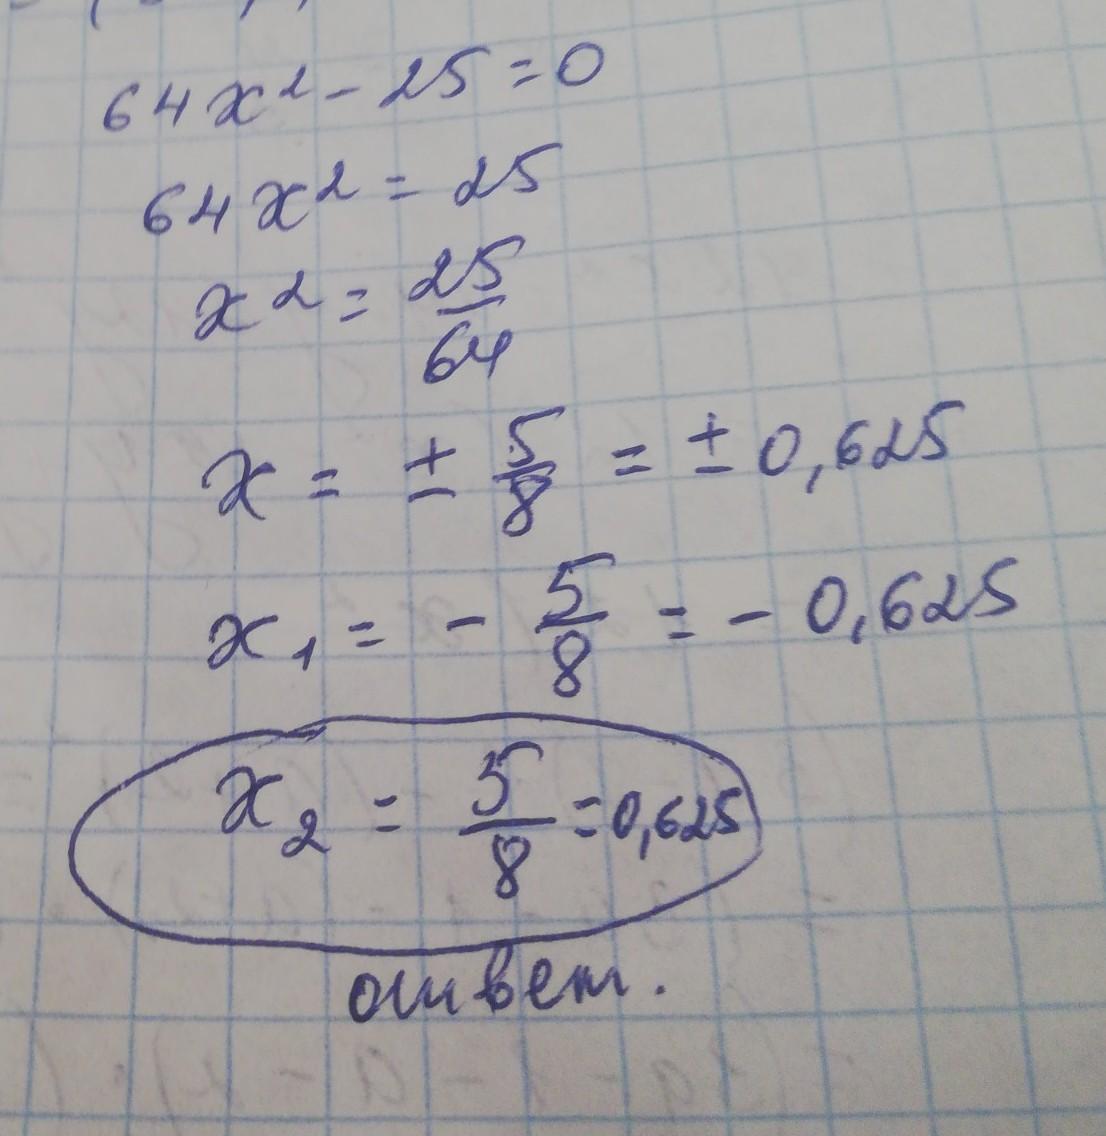 64x² - 25 = 0
64x² = 25
x² = 25/64
x = ± 5/8 = ± 0,625
x₁ = - 5/8 = - 0,625
x₂ = 5/8 = 0,625
ответ.